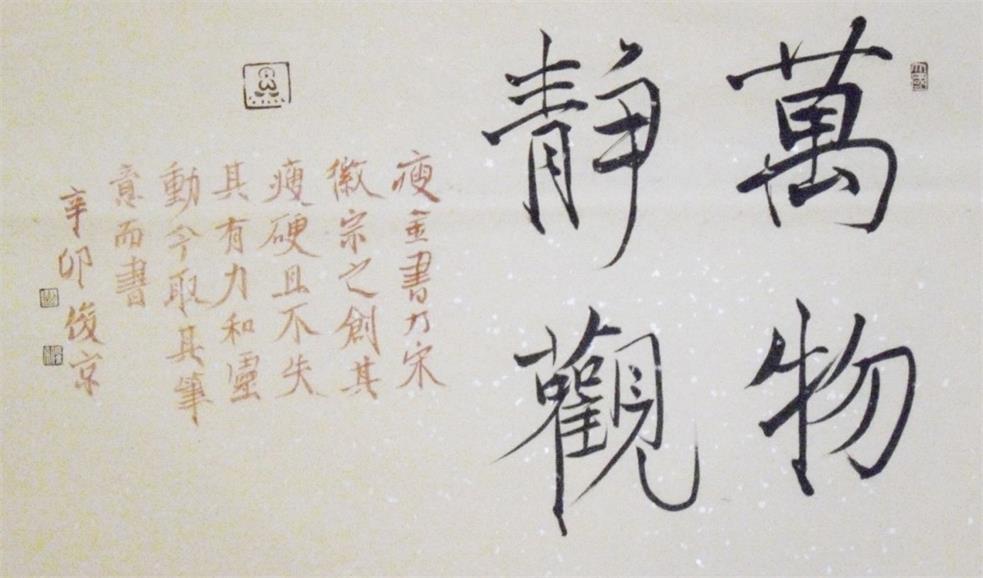 萬物
靜觀
瘦金書乃宋
徽宗之創其
瘦硬且不失
其有力和靈
動今取其筆
意而書
辛卯俊京